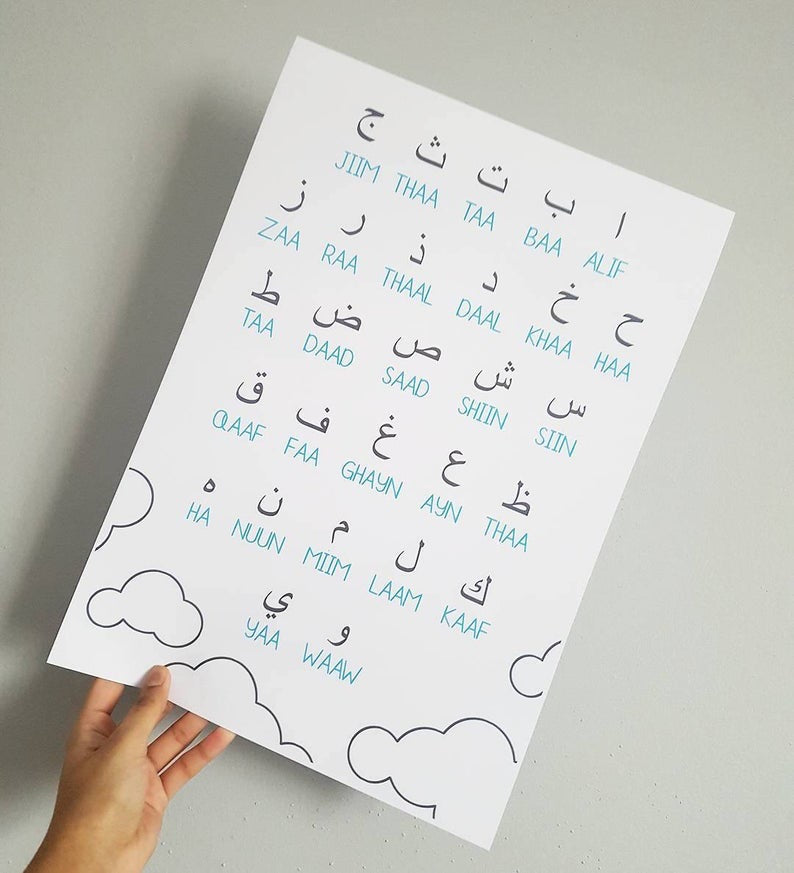 ا ب ت ث ج
ALIF BAA TAA THAA JIIM
ح خ د ذ ر ز
HAA KHAA DAAL THAAL RAA ZAA
س ش ص ض ط
SIIN SHIIN SAAD DAAD TAA
ظ ع غ ف ق
THAA AYN GHAYN FAA QAAF
ك ل م ن ه
KAAF LAAM MIIM NUUN HA
و ي
WAAW YAA